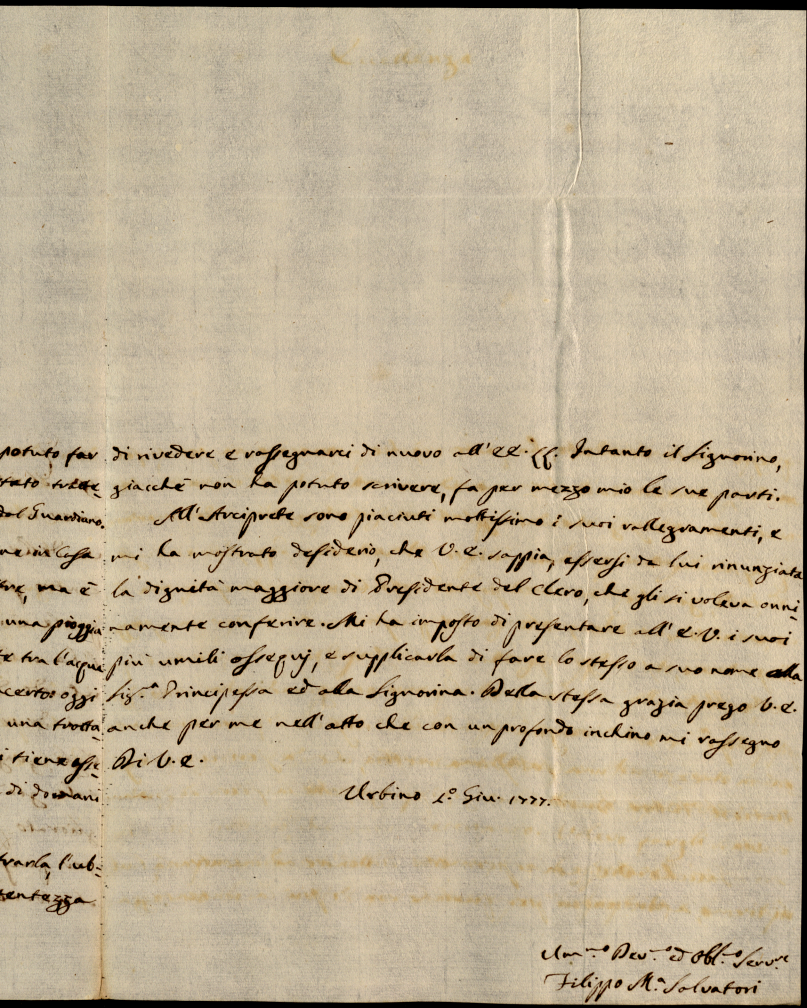 potuto far
dal Guardiano.
ma è
una pioggia
te tra l'acqua
certo oggi
una trotta-
di domani
trarla, l'ub-
tentezza.
di rivedere e rassegnarci di nuovo all'EE. LL. Intanto il Signorino,
giacchè non ha potuto scrivere, fa per mezzo mio le sue parti.
All'Arciprete sono piaciuti moltissimo i suoi rallegramenti, e
mi ha mostrato desiderio, che V. E. sappia, essersi da lui rinunziata
la dignità maggiore di Presidente del Clero, che gli si voleva onni-
namente conferire. Mi ha imposto di presentare all'E. V. i suoi
più umili ossequj, e supplicarla di fare lo stesso a suo nome alla
Sig.ª Principessa ed alla Signorina. Della stessa grazia prego V. E.
anche per me nell'atto che con un profondo inchino mi rassegno
Di V. E.
Urbino 1.º Giu. 1777.
Um.mo Dev.mo ed Obbl.mo Serv.re
Filippo M.ª Salvatori